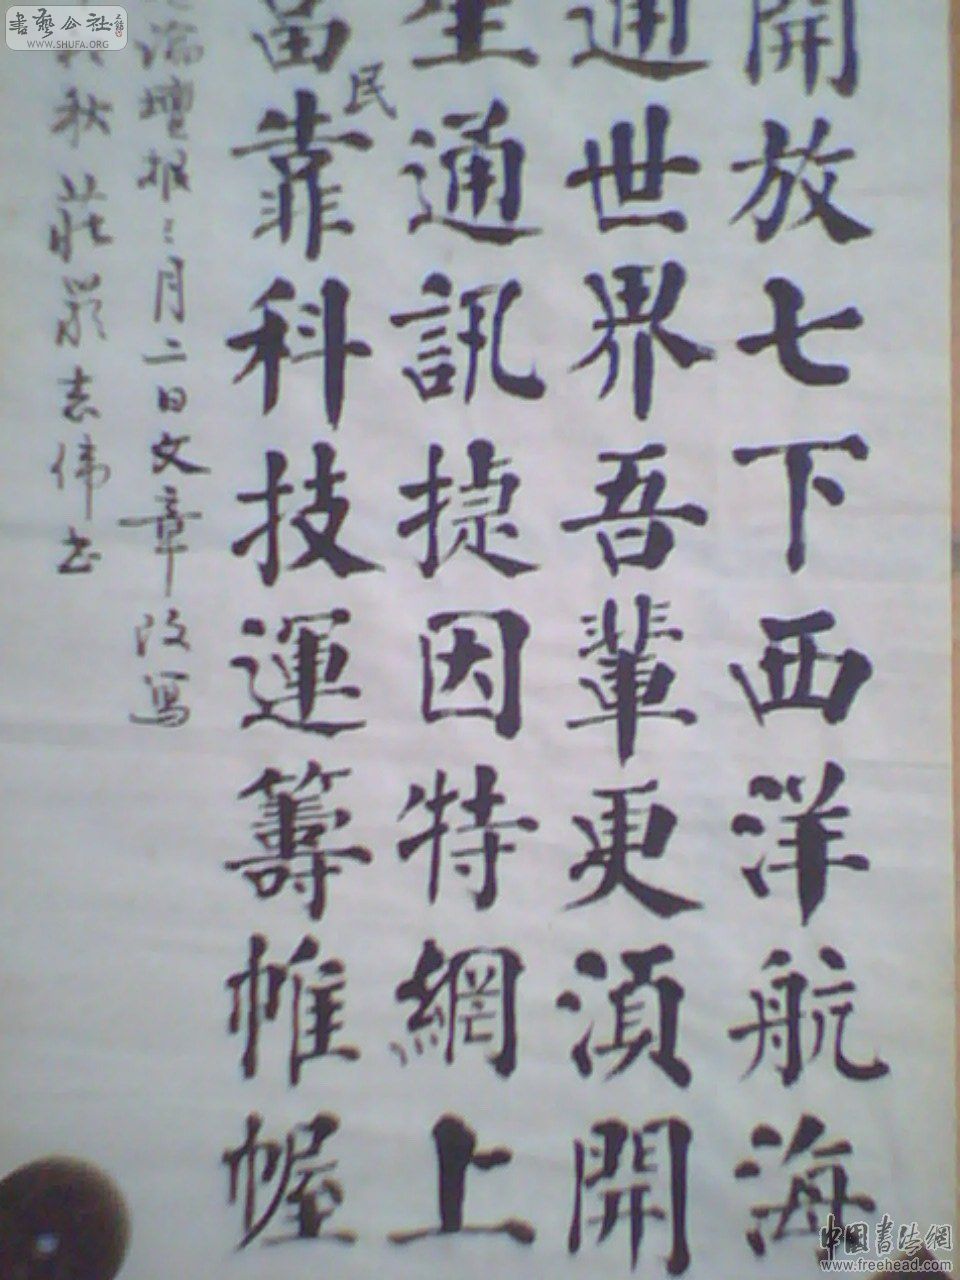 開放七下西洋航海
通世界吾輩更須開
生通訊捷因特網上
富民靠科技運籌帷幄
論壇报三月二日文章改寫
秋莊嚴志伟书
書藝公社
WWW.SHUFA.ORG
中國書法網
www.freehead.com